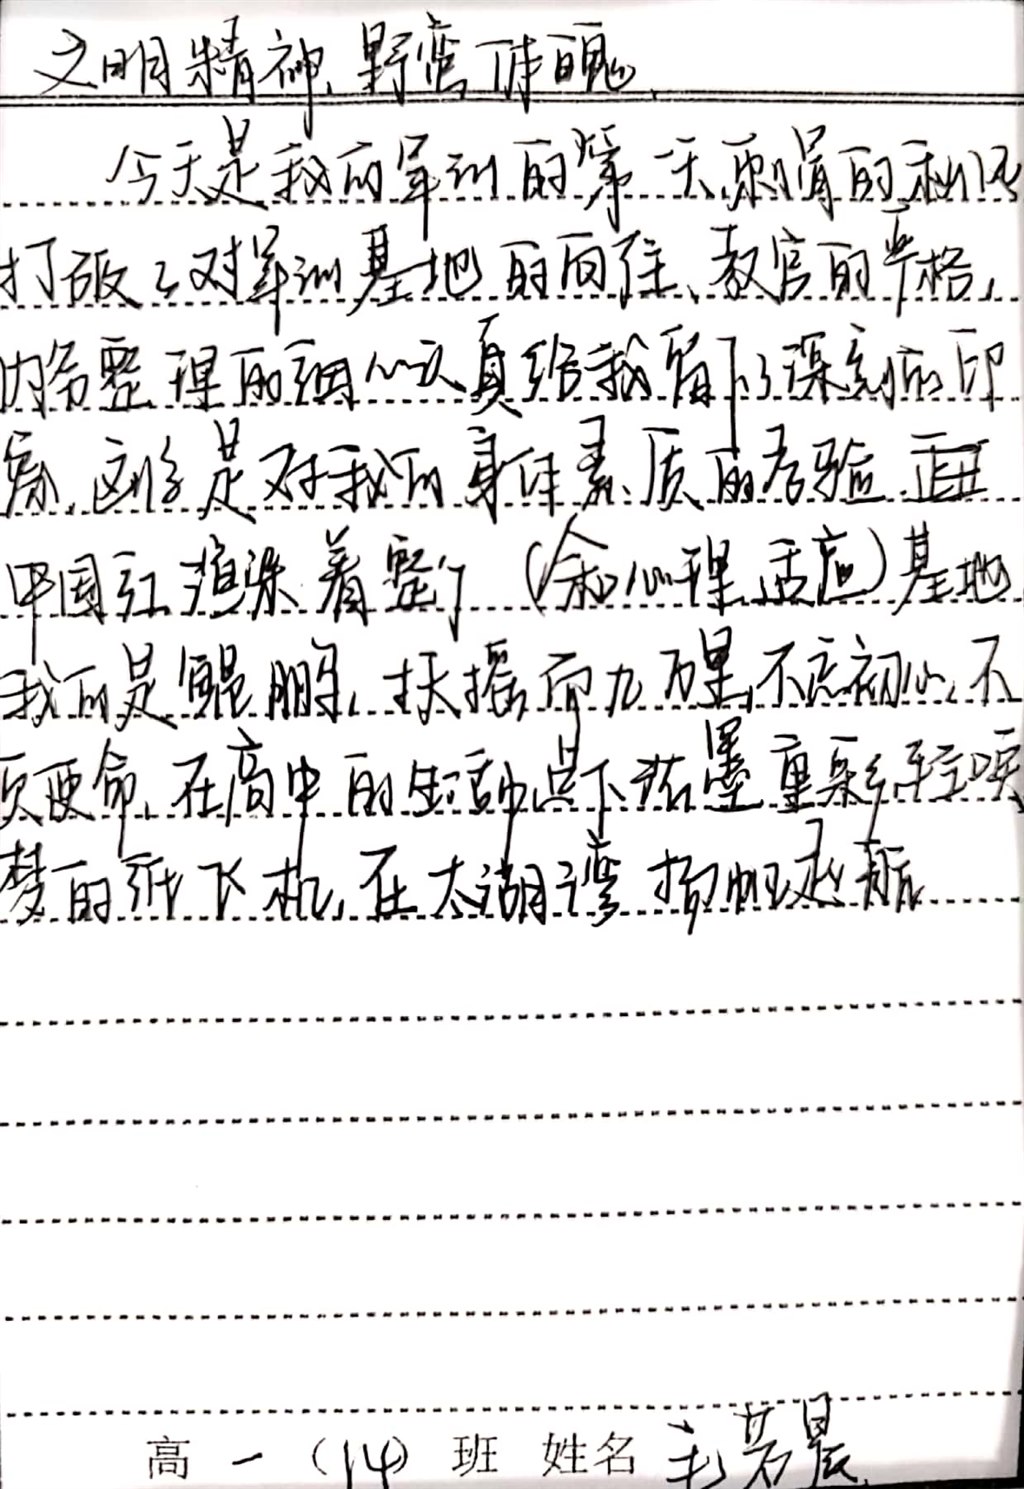 文明精神、野蛮体魄
今天是我们军训的第一天,刺骨的秋风
打破了对军训基地的向往、教官的严格,
内务整理的细心认真给我留下了深刻的印
象,这次是对我们身体素质的考验
中国红渲染着整个(和心理适应)基地
我们是鲲鹏,扶摇而九万里,不忘初心、不
负使命,在高中的生活中点下浓墨重彩,
梦的纸飞机,在太湖湾扬帆起航
高一(14)班 姓名 毛若晨